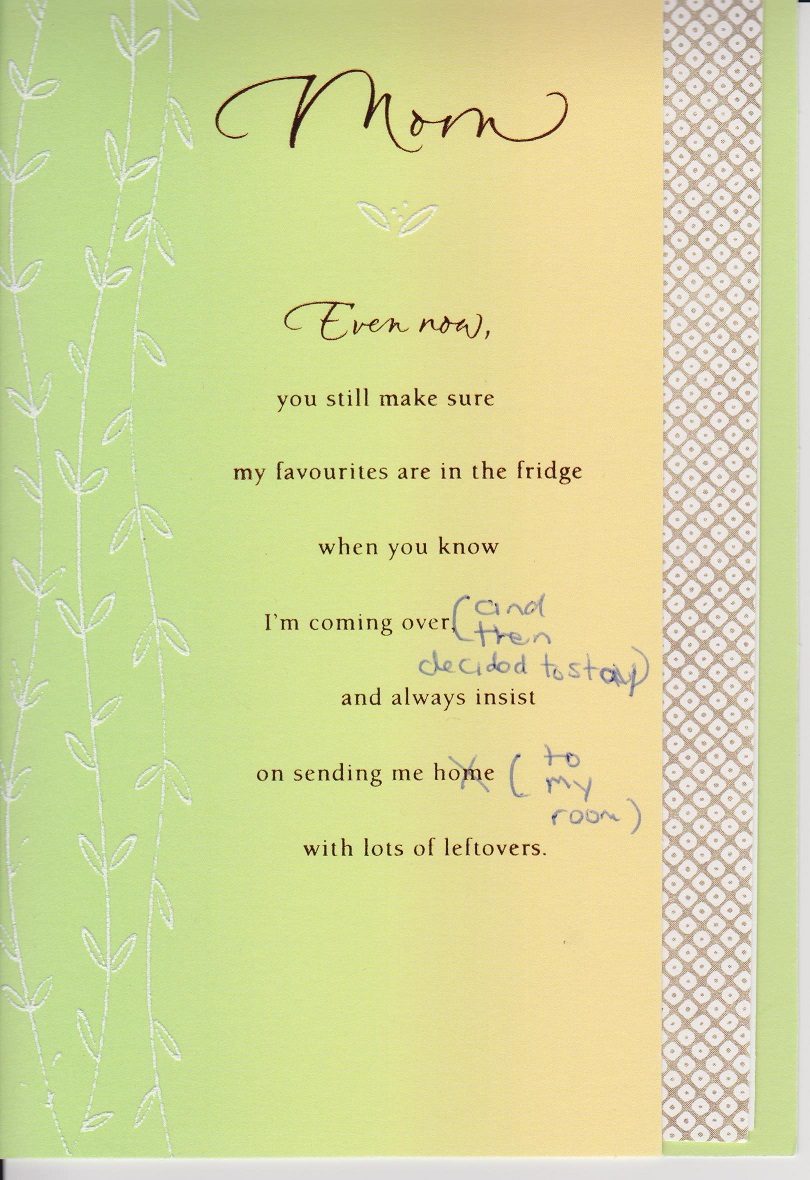 Mom
Even now,
you still make sure
my favourites are in the fridge
when you know
I'm coming over, (and
then
decided to stay)
and always insist
on sending me home ( to
my
room)
with lots of leftovers.